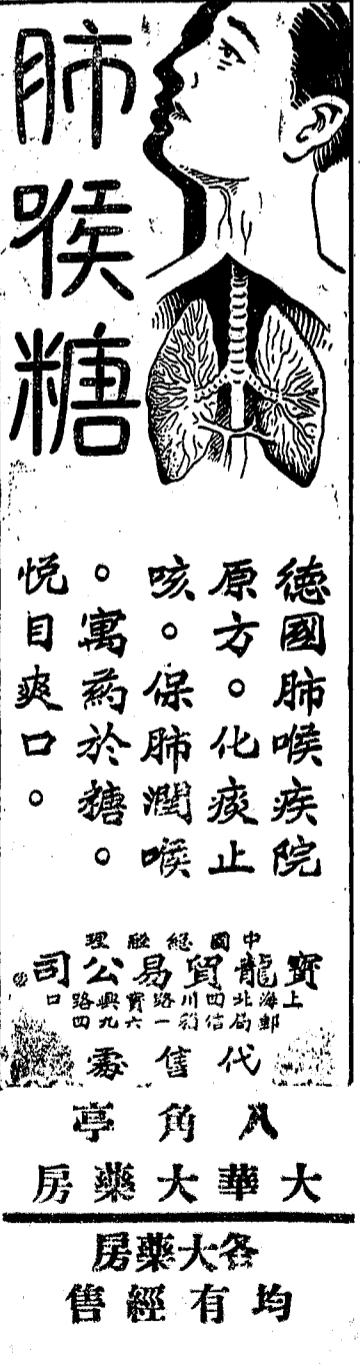 肺喉糖
德國肺喉疾院
原方。化痰止
咳。保肺潤喉
。寓葯於糖。
悅目爽口。
中國總經理
寶龍貿易公司
上海北四川路寶興路口
郵局信箱一六九四
代售處
八角亭
大華大藥房
各大藥房
均有經售